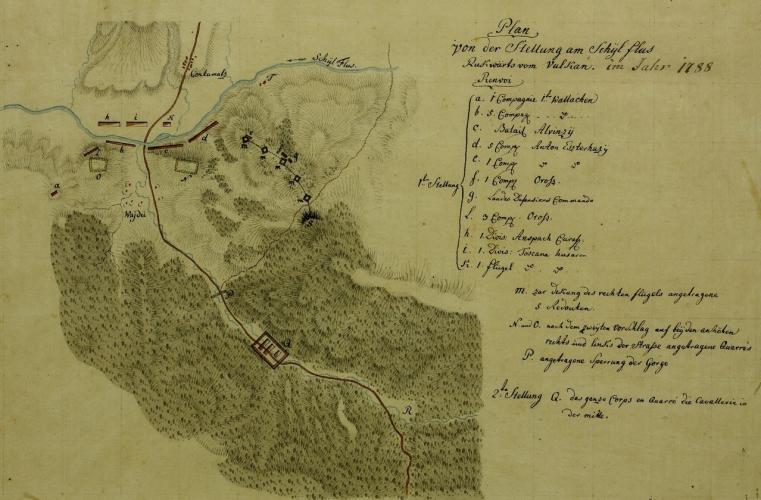 Plan
von der Stellung am Schÿl flus
Rukwärts vom Vulkán. im Jahr 1788
Renvoi
1te Stellung
a. 1 Compagnie 1te Wallachen
b. 5. Compag
c. Bataill Alvinzÿ
d. 5 Compg Anton Esterhazÿ
e. 1 Compg
f. 1 Compg Oross.
g. Landes Defensions Commando
L. 3 Compg. Oross.
h. 1 Divis: Anspach Curass.
i. 1. Divis: Toscana husaren
K. 1 flügel
M. zur dekung des rechten flügels angetragene
5 Redouten.
N und O. nach dem zweÿten Vorschlag auf beÿden anhöhen
rechts und links der Straße angetragene Quarré's
P. angetragene Sperrung der Gorge
2te Stellung Q. das ganze Corps en Quarré die Cavallerie in
der mitte.
Schÿl Flus.
h i K
d
b
a
O
Q
R